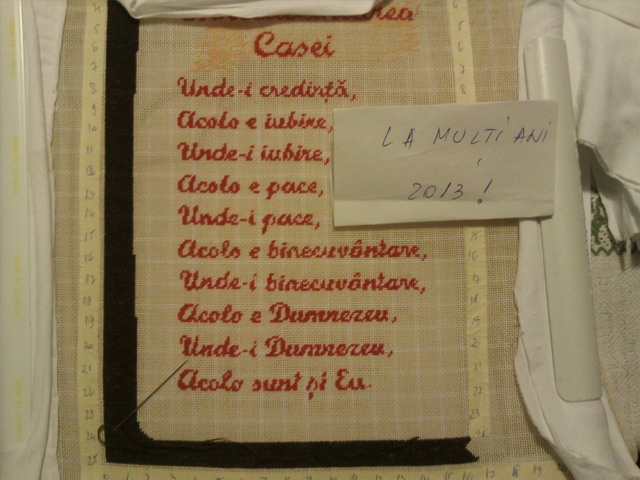 Casei
Unde-i credință,
Acolo e iubire,
Unde-i iubire,
Acolo e pace,
Unde-i pace,
Acolo e binecuvântare,
Unde-i binecuvântare,
Acolo e Dumnezeu,
Unde-i Dumnezeu,
Acolo sunt și Eu.
LA MULTI ANI
2013!